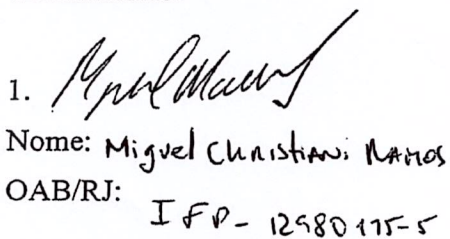 1.
Nome: Miguel Christiani Ramos
OAB/RJ:
IFP - 12980175-5